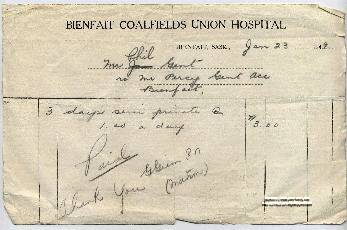 BIENFAIT COALFIELDS UNION HOSPITAL
BIENFAIT, SASK., Jan 23
Phil
Mr Gent
to Mr Percy Gent Acc
Bienfait.
3 days semi private @
1.00 a day $3.00
Paid
Thank You
(matron)